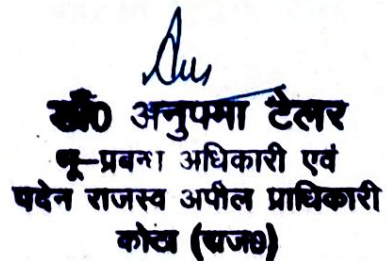 डॉ0 अनुपमा टैलर
भू-प्रबन्ध अधिकारी एवं
पदेन राजस्व अपील प्राधिकारी
कोटा (राज0)